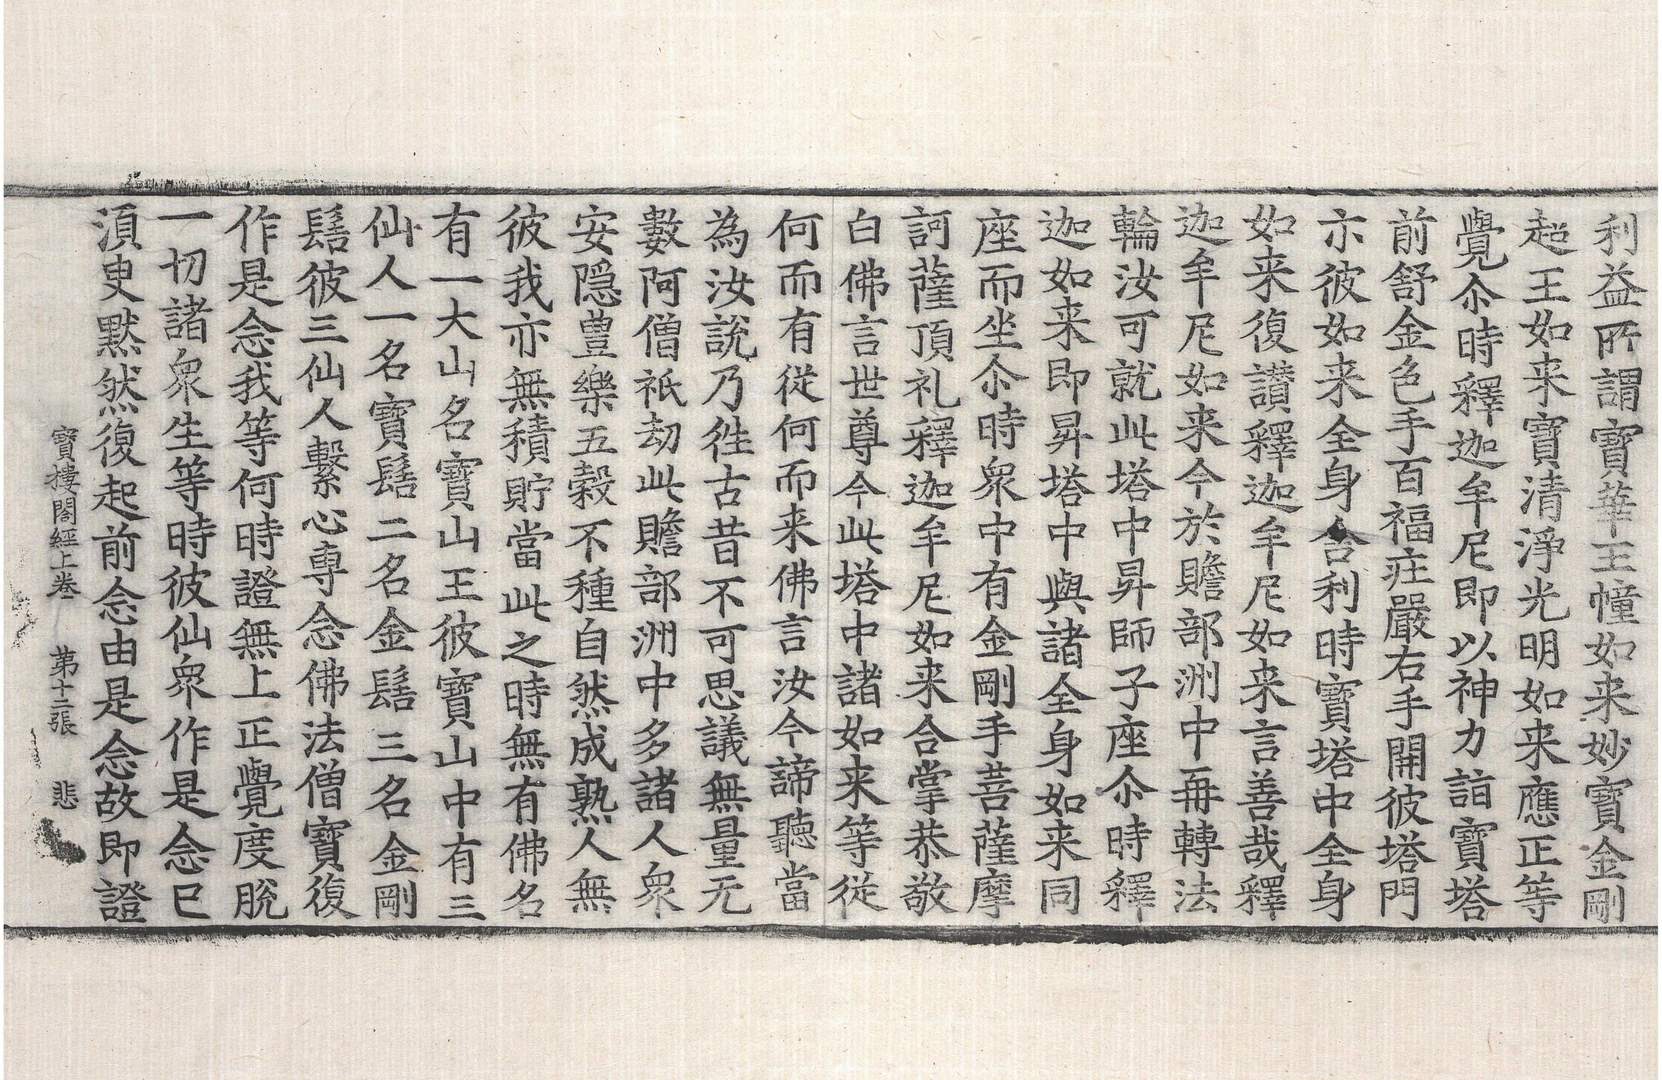 利益所謂寶華王幢如来妙寶金剛
超王如来寶清淨光明如来應正等
覺尒時釋迦牟尼即以神力詣寶塔
前舒金色手百福莊嚴右手開彼塔門
示彼如来全身舍利時寶塔中全身
如来復讃釋迦牟尼如来言善哉釋
迦牟尼如来今於贍部洲中再轉法
輪汝可就此塔中昇師子座尒時釋
迦如来即昇塔中與諸全身如来同
座而坐尒時衆中有金剛手菩薩摩
訶薩頂礼釋迦牟尼如来合掌恭敬
白佛言世尊今此塔中諸如来等從
何而有從何而来佛言汝今諦聽當
為汝說乃徃古昔不可思議無量无
數阿僧祇劫此贍部洲中多諸人衆
安隱豊樂五穀不種自然成熟人無
彼我亦無積貯當此之時無有佛名
有一大山名寶山王彼寶山中有三
仙人一名寶髻二名金髻三名金剛
髻彼三仙人繫心專念佛法僧寶復
作是念我等何時證無上正覺度脫
一切諸衆生等時彼仙衆作是念已
湏臾黙然復起前念由是念故即證
寶樓閣經上卷　第十二張　悲